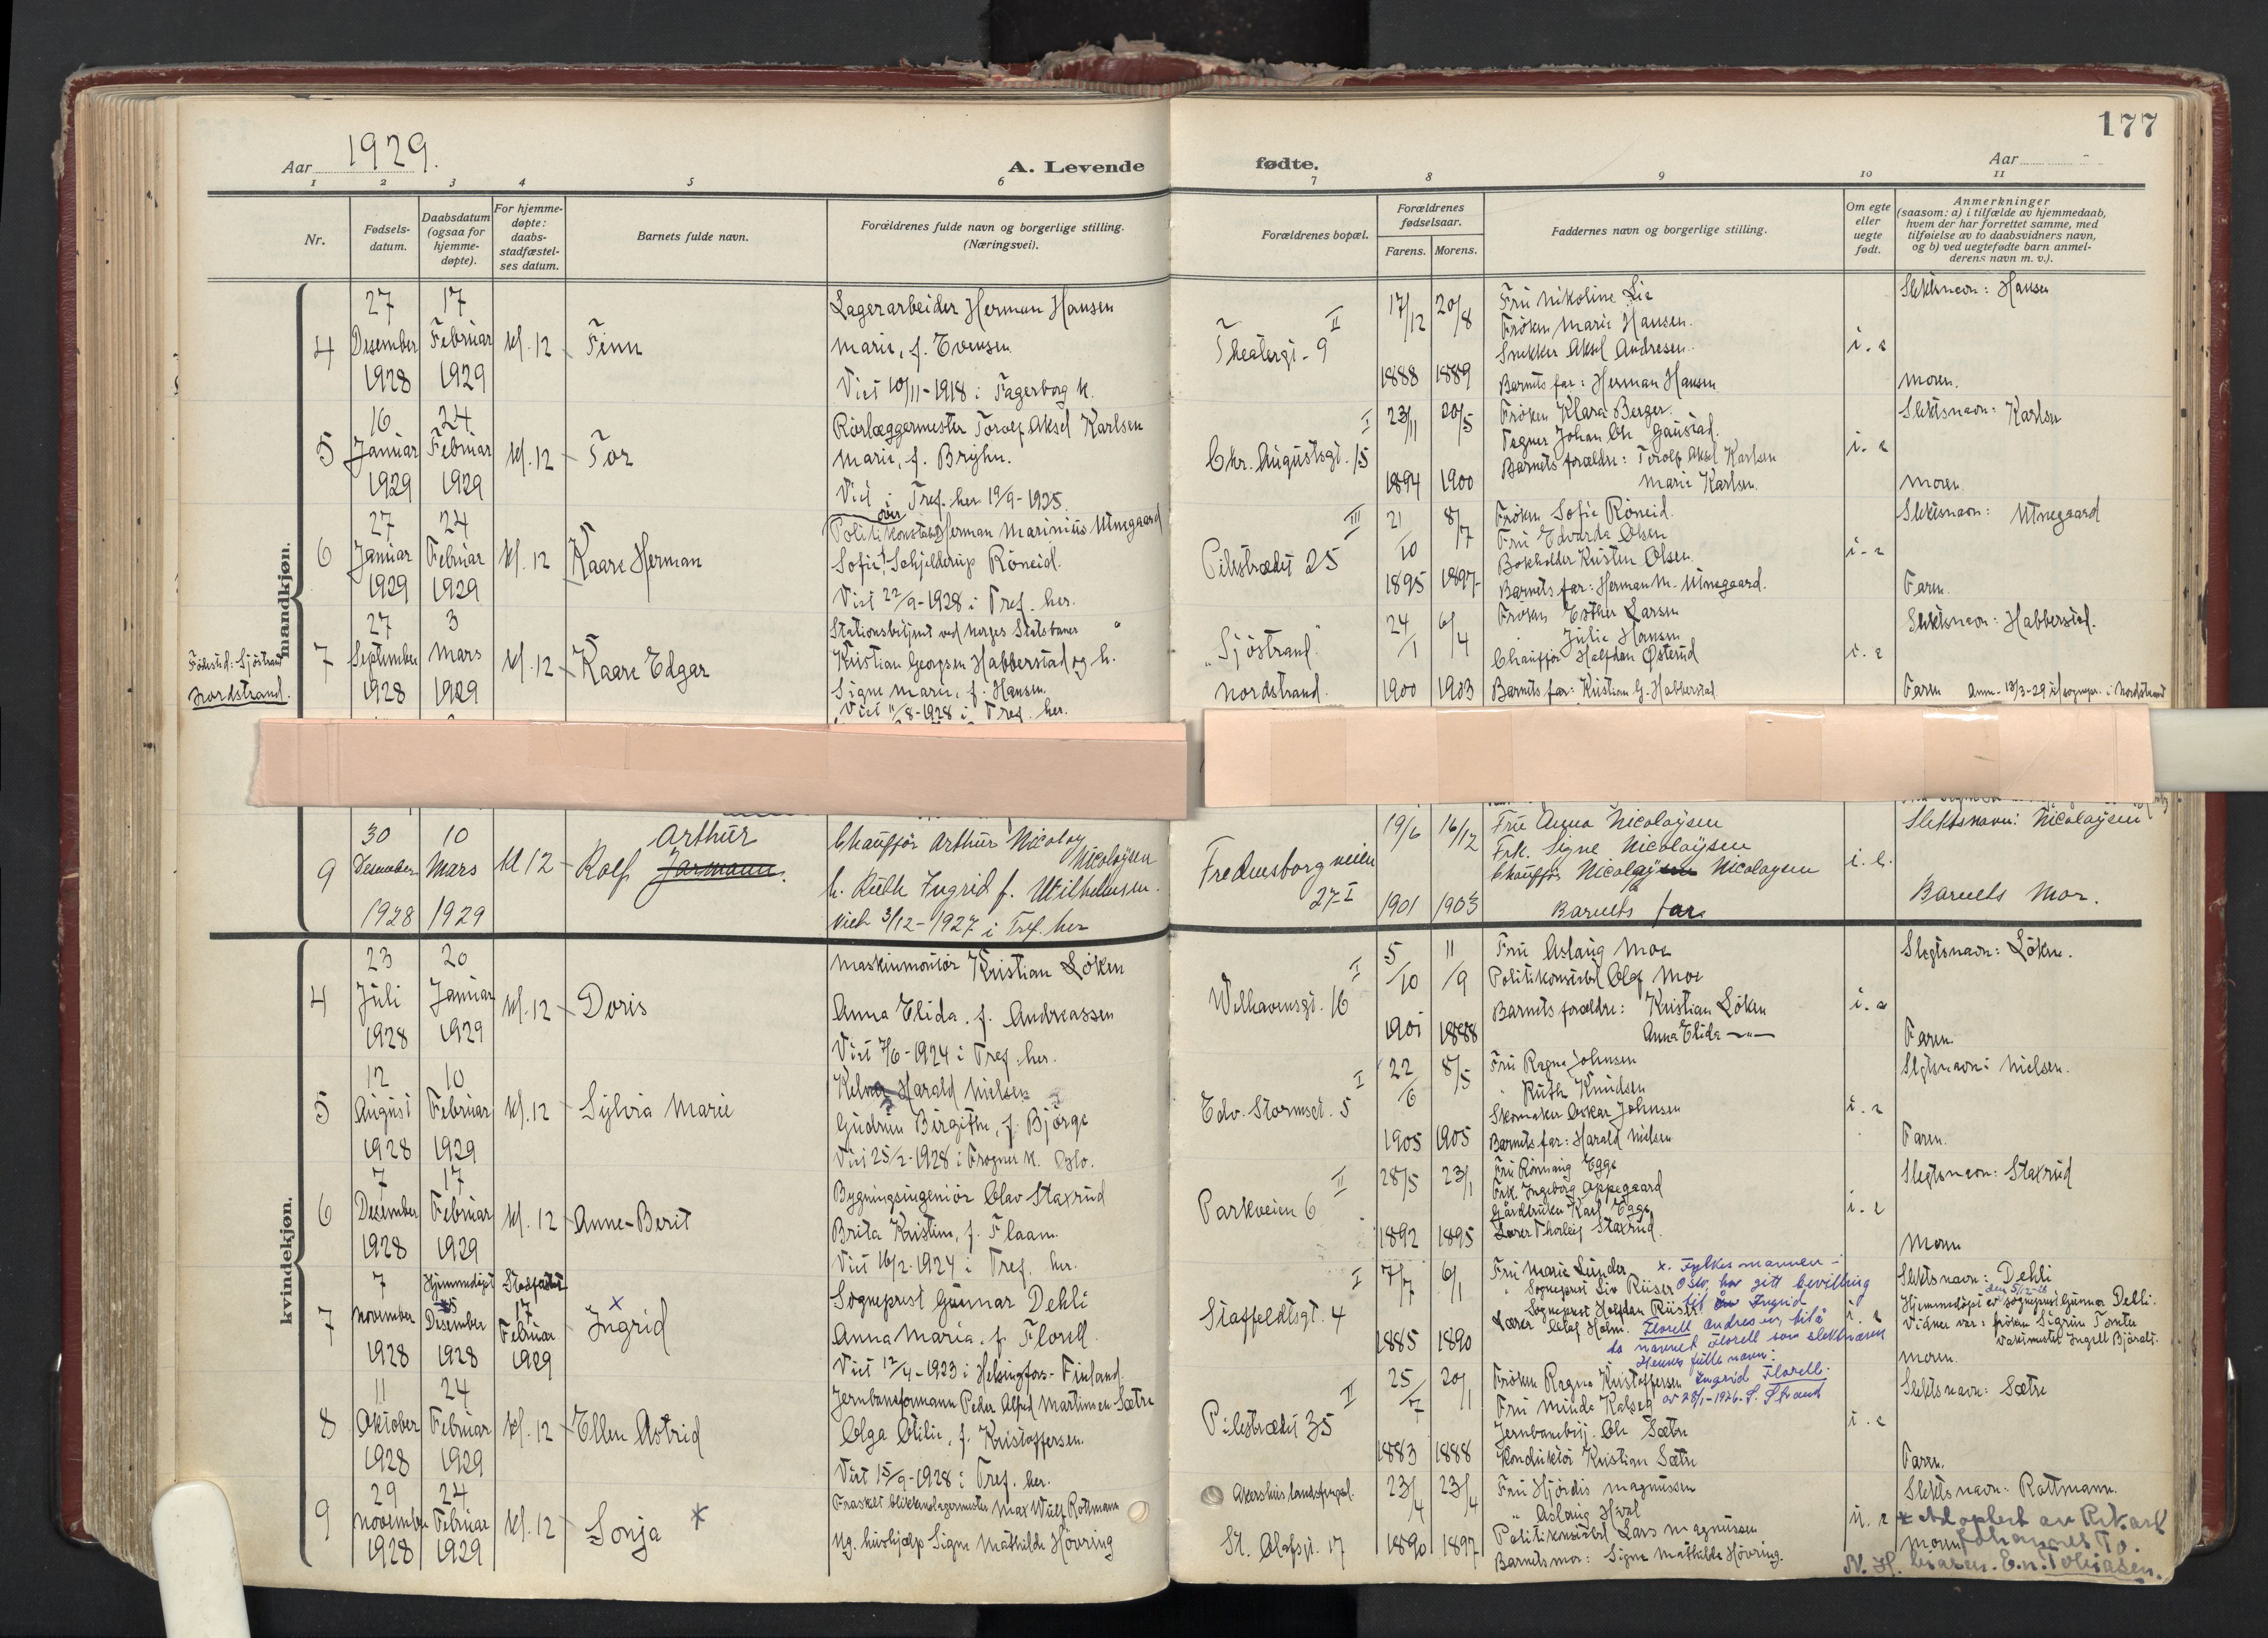 177
Aar 1929.
A. Levende fødte.
Aar
1 2 3 4 5 6 7 8 9 10 11
Nr.
Fødsels-
datum.
Daabsdatum
(ogsaa for
hjemme-
døpte).
For hjemme-
døpte:
daabs-
stadfæstel-
ses datum.
Barnets fulde navn.
Forældrenes fulde navn og borgerlige stilling.
(Næringsvei).
Forældrenes bopæl.
Forældrenes
fødselsaar.
Farens. Morens.
Faddernes navn og borgerlige stilling.
Om egte
eller
uegte
født.
Anmerkninger
(saasom: a) i tilfælde av hjemmedaab,
hvem der har forrettet samme, med
tilføielse av to daabsvidners navn,
og b) ved uegtefødte barn anmel-
derens navn m. v.).
mandkjøn.
4
27
Desember
1928
17
Februar
1929
kl. 12
Finn
Lagerarbeider Herman Hansen
Marie, f. Evensen
Viet 10/11-1918 i Fagerborg k.
Theatergt. 9 II
17/12 20/8
1888 1889
Fru Nikoline Lie
Frøken Marie Hansen.
Snekker Aksel Andresen.
Barnets far: Herman Hansen
i. e
Slektsnavn: Hansen
Moren.
5
16
Januar
1929
24
Februar
1929
kl. 12
Tor
Rørlæggermester Torolf Aksel Karlsen
Marie, f. Bryhn.
Viet i Tref. her 19/9-1925.
Chr. Augustsgt. 15 I
23/11 20/5
1894 1900
Frøken Klara Berger.
Tegner Johan Chr. Gaustad.
Barnets forældre: Torolf Aksel Karlsen
Marie Karlsen.
i. e
Slektsnavn: Karlsen
Moren
6
27
Januar
1929
24
Februar
1929
kl. 12
Kaare Herman
over
Politikonstabel Herman Marinius Utnegaard
Sofie Schjelderup Røneid.
Viet 22/9-1928 i Tref. her.
Pilestrædet 25 III
21/10 8/7
1895 1897
Frøken Sofie Røneid.
Fru Edvarda Olsen
Bokholder Kristen Olsen.
Barnets far: Herman M. Utnegaard.
i. e
Slektsnavn: Utnegaard
Faren.
Fødested: Sjöstrand
Nordstrand.
7
27
September
1928
3
Mars
1929
kl. 12
Kaare Edgar
Stationsbetjent ved Norges Statsbaner
Kristian Georgsen Habberstad og h.
Signe Marie, f. Hansen.
Viet 11/8-1928 i Tref. her.
"Sjöstrand"
Nordstrand.
24/1 6/4
1900 1903
Frøken Esther Larsen
" Julie Hansen
Chauffør Halfdan Østerud
Barnets far: Kristian G. Habberstad
i. e
Slektsnavn: Habberstad.
Faren Anm. 13/3-29 til sognepr. i Nordstrand
9
30
Desember
1928
10
Mars
1929
kl 12
Arthur
Rolf Jarmann.
Chauffør Arthur Nicolay
Nicolaysen
h. Ruth Ingrid f. Wilhelmsen.
Viet 3/12-1927 i Tref. her
Fredensborgveien
27 I
19/6 16/12
1901 1903
Fru Anna Nicolaysen
Frk. Signe Nicolaysen
Chauffør Nicolaysen Nicolaysen
Barnets far
i. e.
Slektsnavn: Nicolaysen
Barnets Mor.
kvindekjøn.
4
23
Juli
1928
20
Januar
1929
kl. 12
Doris
Maskinmontør Kristian Löken
Anna Elida. f. Andreassen
Viet 7/6-1924 i Tref. her.
Welhavensgt. 16 I
5/10 11/9
1901 1888
Fru Aslaug Moe
Politikonstabel Olaf Moe
Barnets forældre: Kristian Löken
Anna Elida —"—
i. e
Slegtsnavn: Löken.
Faren.
5
12
August
1928
10
Februar
1929
kl. 12
Sylvia Marie
Kelner Harald Nielsen
Gudrun Birgithe, f. Bjørge
Viet 25/2-1928 i Frogner k. Oslo.
Edv. Stormsgt. 5 I
22/6 8/5
1905 1905
Fru Ragna Johnsen
" Ruth Knudsen
Skomaker Oskar Johnsen
Barnets far: Harald Nielsen
i. e
Slegtsnavn: Nielsen.
Faren.
6
7
Desember
1928
17
Februar
1929
kl. 12
Anne-Berit
Bygningsingeniør Olav Staxrud
Brita Kristine, f. Flaam.
Viet 16/2-1924 i Tref. her.
Parkveien 6 II
28/5 23/1
1892 1895
Fru Rönnaug Egge
Frk. Ingeborg Oppegaard
Gårdbruker Karl Egge
Lærer Thorleif Staxrud.
i. e
Slegtsnavn: Staxrud
Moren
7
7
November
1928
Hjemmedøpt
Desember
1928
Stadfestet
17
Februar
1929
x
Ingrid
Sogneprest Gunnar Dehli
Anna Maria, f. Florell.
Viet 12/4-1923 i Helsingfors-Finland.
Staffeldtsgt. 4 I
7/7 6/1
1885 1890
Fru Marie Lunder
" Sogneprest Liv Riiser
Sogneprest Halfdan Riiser.
Lærer Olaf Holm.
x. Fylkesmannen i
Oslo har gitt bevilling
til Ingrid
Florell andres
navnet Florell som slektsnavn
Hennes fulle navn:
Ingrid Florell.
i. e
Slektsnavn: Dehli
den 5/12-28
Hjemmedøpt av sogneprest Gunnar Dehli.
Vidner var: frøken Sigrun Tomter
vaktmester Ingolf Bjørnli.
Moren.
8
11
Oktober
1928
24
Februar
1929
kl. 12
Ellen Astrid
Jernbaneformann Peder Alfred Martinsen Sætre
Olga Otilie, f. Kristoffersen.
Viet 15/9-1928 i Tref. her.
Pilestrædet 35 II
25/7 20/1
1883 1888
Frøken Ragna Kristoffersen
Fru Minda Kalseg
Jernbanebetj. Ole Sætre
Konduktør Kristian Sætre
i. e
Slektsnavn: Sætre
Faren.
9
29
November
1928
24
Februar
1929
kl. 12
Sonja *
Fraskilt blikkenslagermester Max Wulf Rottmann
Ug. hushjælp Signe Mathilde Hövring
Akershus landsfengsel.
St. Olafsgt. 17
23/4 23/4
1890 1897
Fru Hjørdis Magnussen
" Aslaug Hval
Politikonstabel Lars Magnussen
Barnets mor: Signe Mathilde Hövring.
u. e
Slektsnavn: Rottmann.
Moren
* adoptert av
Johannes To.